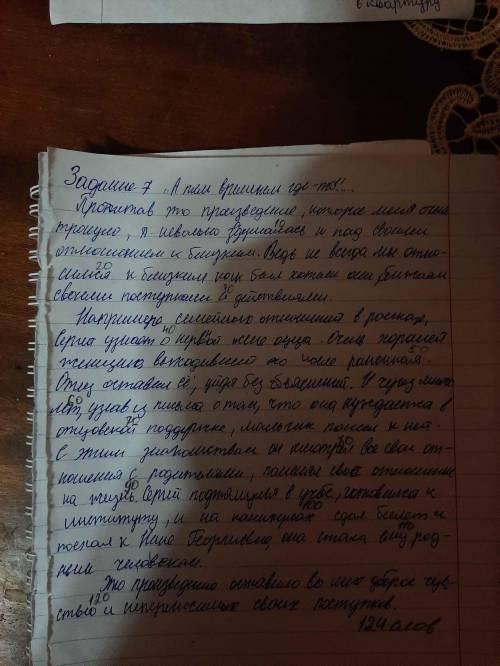 в квартиру
Задание 7 „А тем временем где-то!...
Прочитав это произведение, которое меня очень
тронуло, я невольно задумалась 10 и над своим
отношением к близким. Ведь не всегда мы отно-
симся 20 к близким как бы
своими поступками 30 и действиями.
Например семейного отношения в рассказе,
Сергей узнаёт о 40 первой жене отца. Очень хорошей
женщине после ранения 50
Отец оставил её, уйдя без объяснений. И через много
лет, 60 узнав из письма о том, что она нуждается в
отцовской 70 поддержке, мальчик поехал к ней.
С этим знакомством он 80 все свои от-
ношения с родителями, поменял своё отношение
на жизнь. 90 Сергей подтянулся в учёбе, готовился к
институту, и на каникулах 100 сдал билет и
поехал к Нине Георгиевне, она стала ему 110 род-
ным человеком.
Это произведение оставило во мне доброе чув-
ство 120 и своих поступков.
124 слов